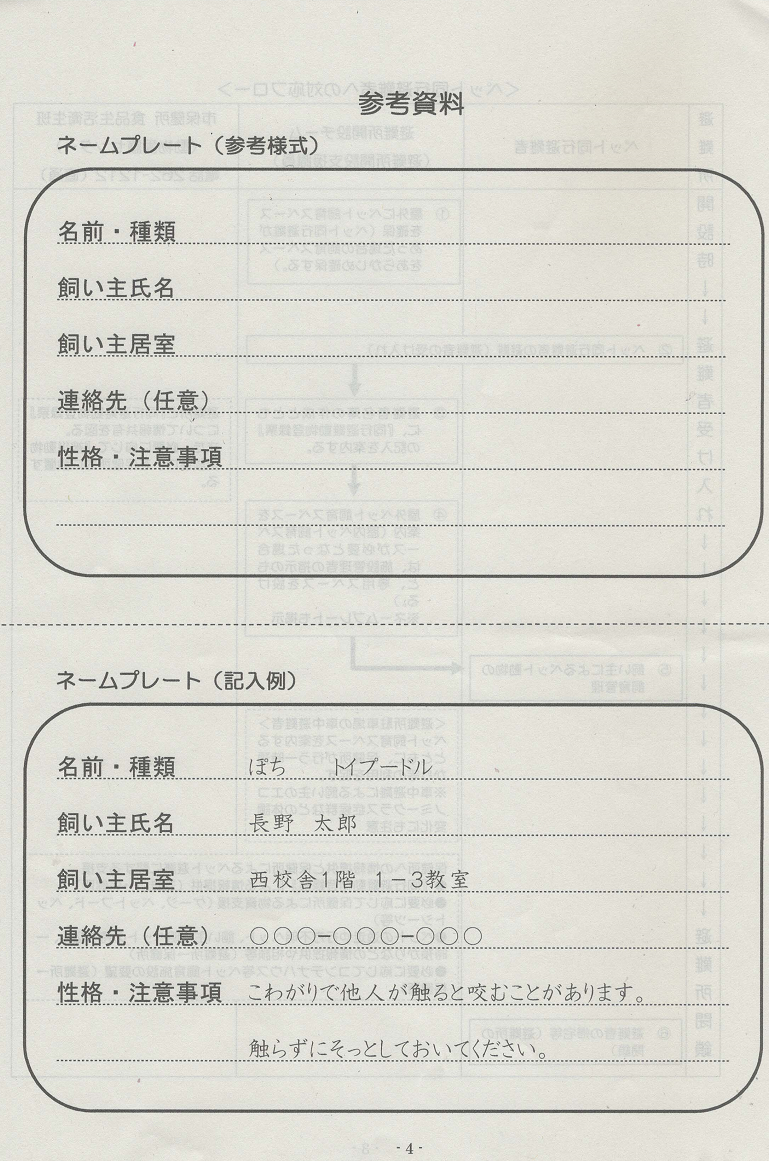 参考資料
ネームプレート（参考様式）
名前・種類
飼い主氏名
飼い主居室
連絡先（任意）
性格・注意事項
ネームプレート（記入例）
名前・種類　ぽち　トイプードル
飼い主氏名　長野　太郎
飼い主居室　西校舎1階　1－3教室
連絡先（任意）　○○○-○○○-○○○
性格・注意事項　こわがりで他人が触ると咬むことがあります。
触らずにそっとしておいてください。
- 4 -